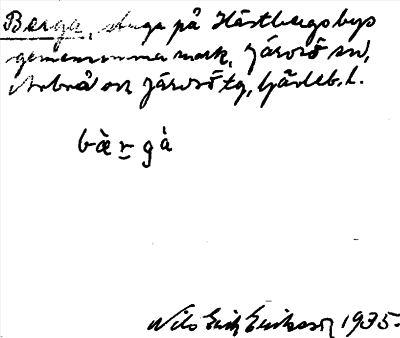 Berga, stuga på Hästbergs bys
gemensamma mark, Järvsö sn,
Arbrå och Järvsö tg, Gävleb. l.
bæ̀r gȧ̀
Nils Erik Eriksson 1935.